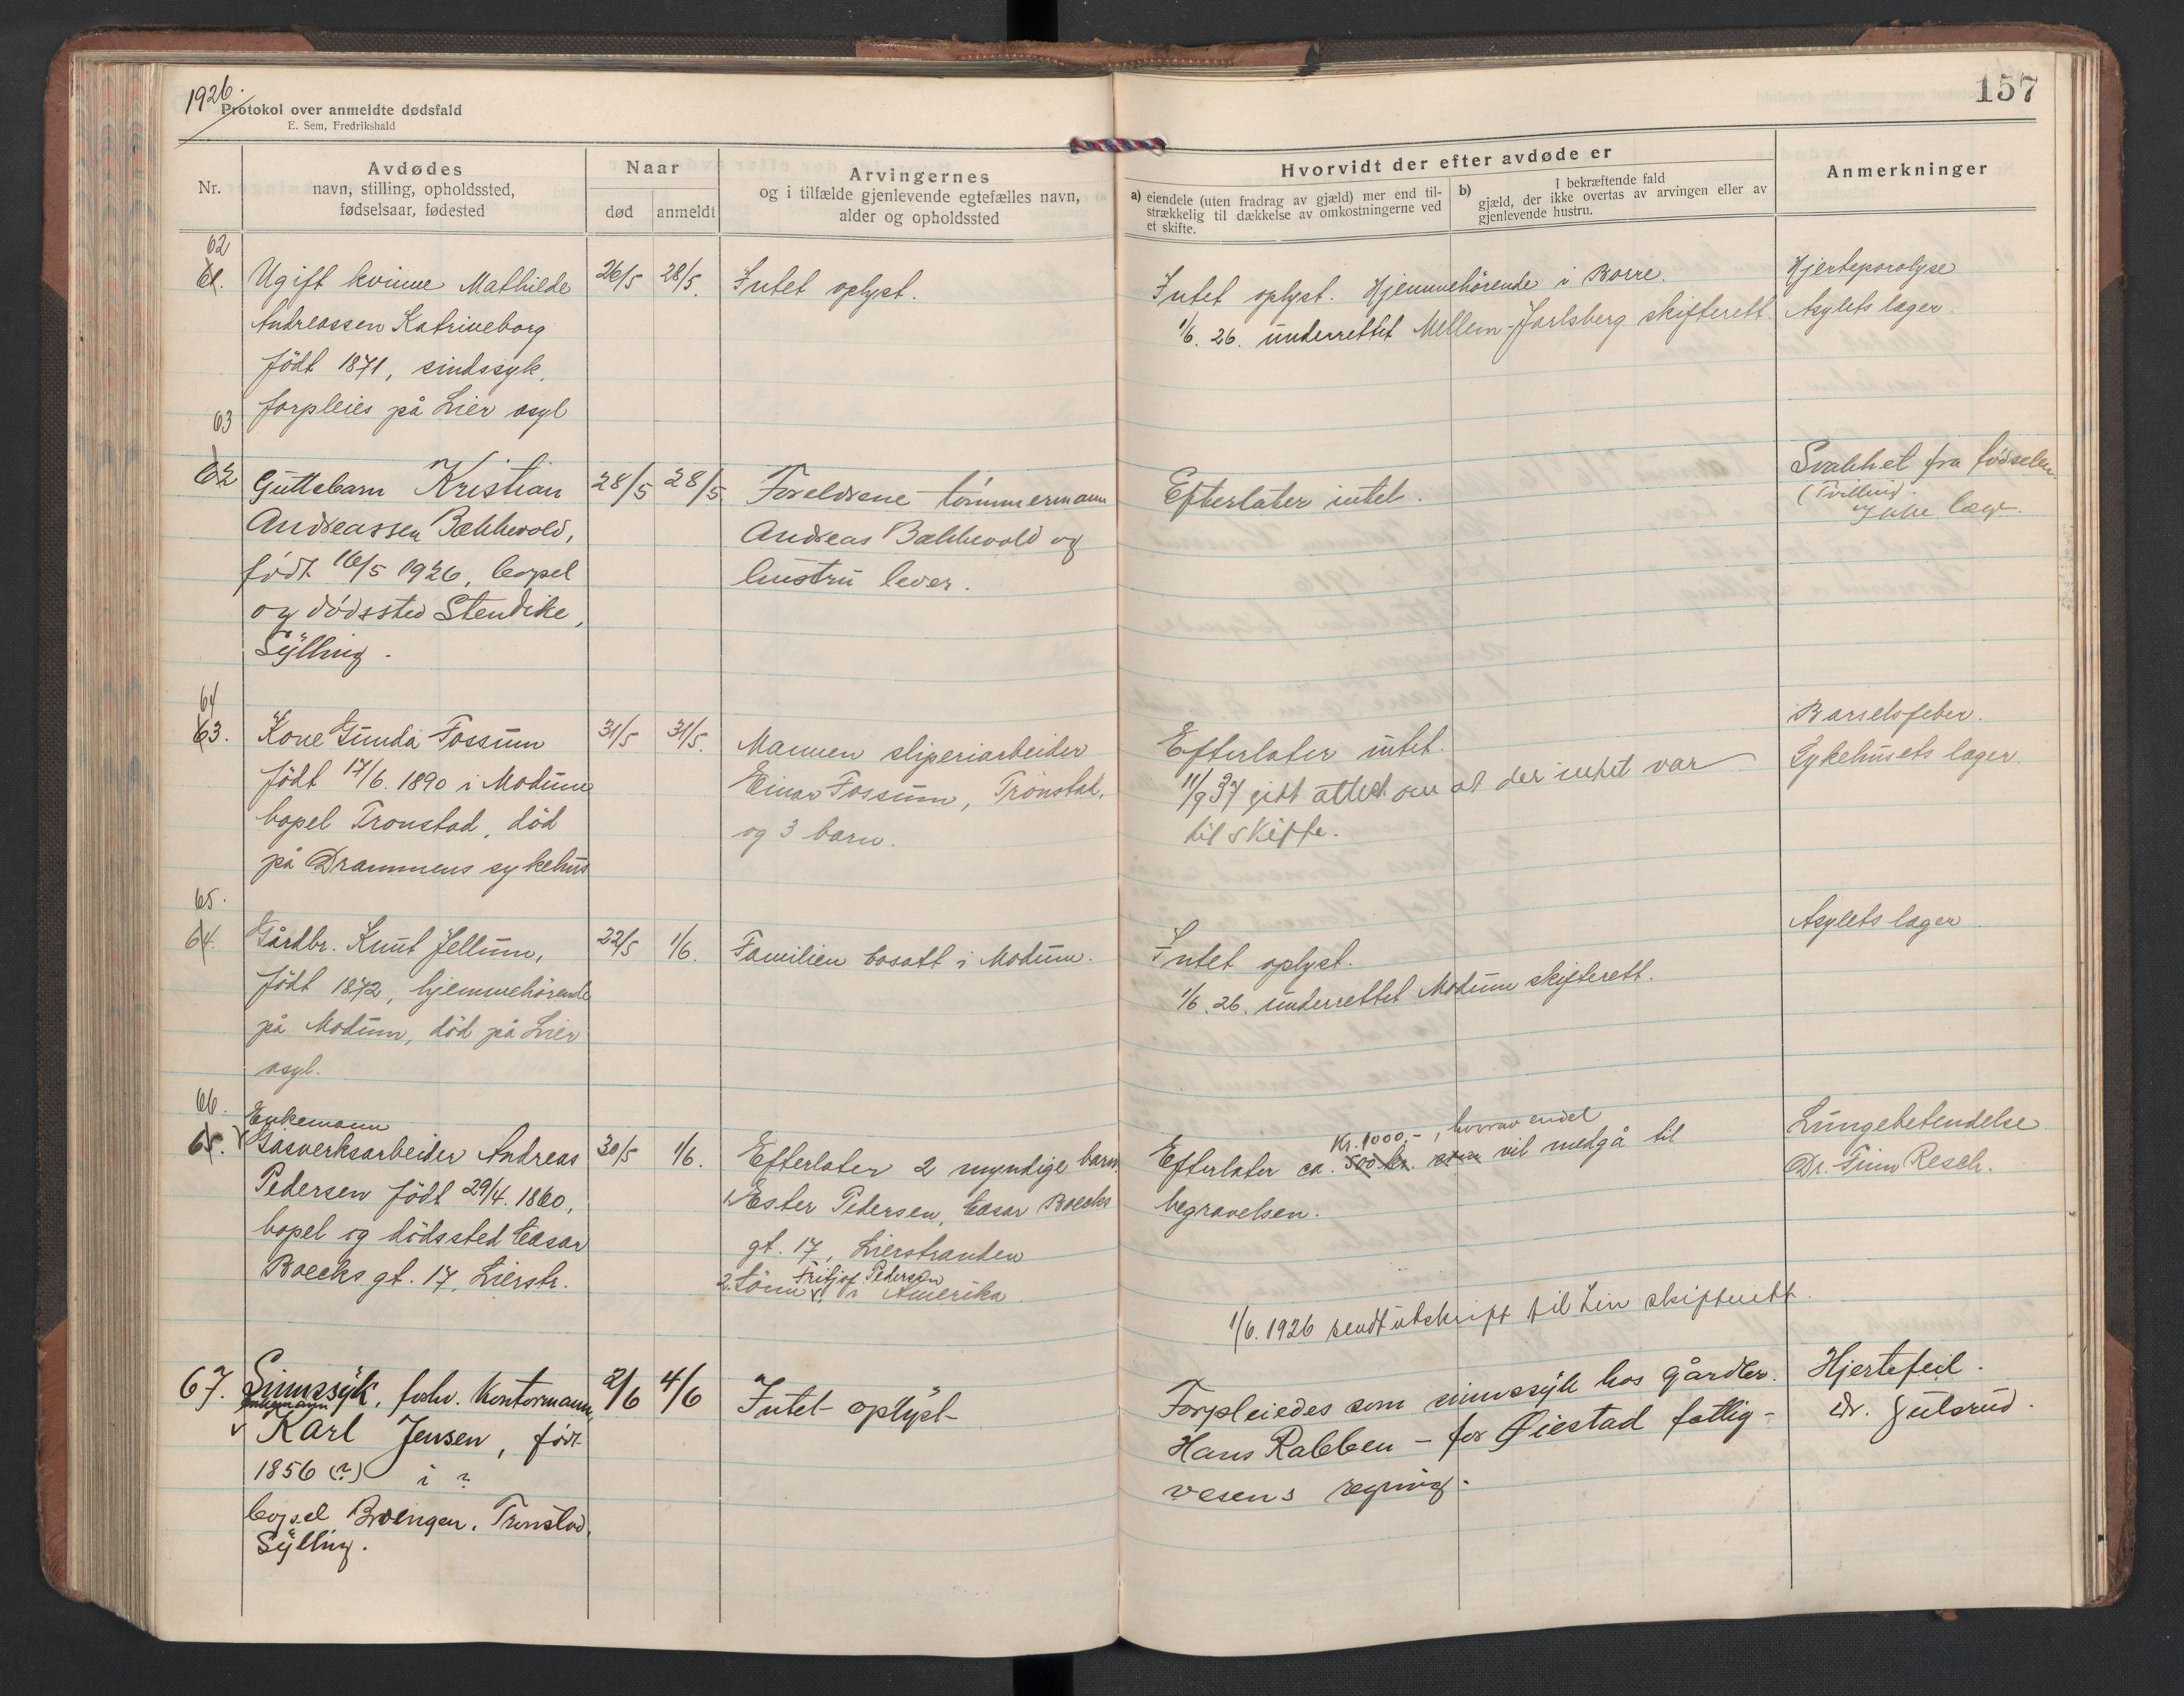 1926.
157
Protokol over anmeldte dødsfald
E. Sem, Fredrikshald
Nr.
Avdødes
navn, stilling, opholdssted,
fødselsaar, fødested
Naar
død
anmeldt
Arvingernes
og i tilfælde gjenlevende egtefælles navn,
alder og opholdssted
Hvorvidt der efter avdøde er
a) eiendele (uten fradrag av gjæld) mer end til-
strækkelig til dækkelse av omkostningerne ved
et skifte.
b) I bekræftende fald
gjæld, der ikke overtas av arvingen eller av
gjenlevende hustru.
Anmerkninger
62
61.
Ugift kvinne Mathilde
Andreassen Katrineborg
født 1871, sindssyk,
forpleies på Lier asyl
26/5
28/5.
Intet oplyst.
Intet oplyst. Hjemmehörende i Borre.
1/6. 26. underrettet Mellem-Jarlsberg skifterett.
Hjerteparalyse
Asylets læger.
63
62
Guttebarn Kristian
Andreassen Bækkevold,
født 16/5 1926, bopel
og dødssted Stendike,
Sylling.
28/5
28/5.
Foreldrene tömmermann
Andreas Bækkevold og
hustru lever.
Efterlater intet.
Svakhet fra födselen
(Tvilling).
Ikke læge.
64
63.
Kone Gunda Fossum
født 17/6. 1890 i Modum
bopel Tronstad, död
på Drammens sykehus
31/5
31/5.
Mannen sliperiarbeider
Einar Fossum, Tronstad,
og 3 barn.
Efterlater intet.
11/9 37 gitt attest om at der intet var
til skifte.
Barselsfeber.
Sykehusets læger.
65.
64.
Gårdbr. Knut Jellum,
født 1872, hjemmehörende
på Modum, död på Lier
asyl.
22/5
1/6.
Familien bosatt i Modum.
Intet oplyst.
1/6. 26. underrettet Modum skifterett.
Asylets læger
66.
65.
Enkemann
Gasverksarbeider Andreas
Pedersen født 29/4. 1860,
bopel og dødssted Cæsar
Boecks gt. 17, Lierstr.
30/5
1/6.
Efterlater 2 myndige barn
1. Ester Pedersen, Cæsar Boecks
gt. 17, Lierstranden
2. Sönn Fritjof Pedersen i Amerika.
Kr. 1000.-, hvorav endel
Efterlater ca. 500 kr. som vil medgå til
begravelsen.
1/6. 1926 sendt utskrift til Lier skifterett.
Lungebetendelse
Dr. Finn Resch.
67.
Sinnssyk, forhv. kontormann,
enkemann
Karl Jensen, født
1856 (?) i ?
bopel Brængen, Tronstad,
Sylling.
2/6
4/6
Intet oplyst
Forpleiedes som sinnssyk hos gårdbr.
Hans Rabben - for Øiestad fattig-
vesens regning.
Hjertefeil.
Dr. Gulsrud.